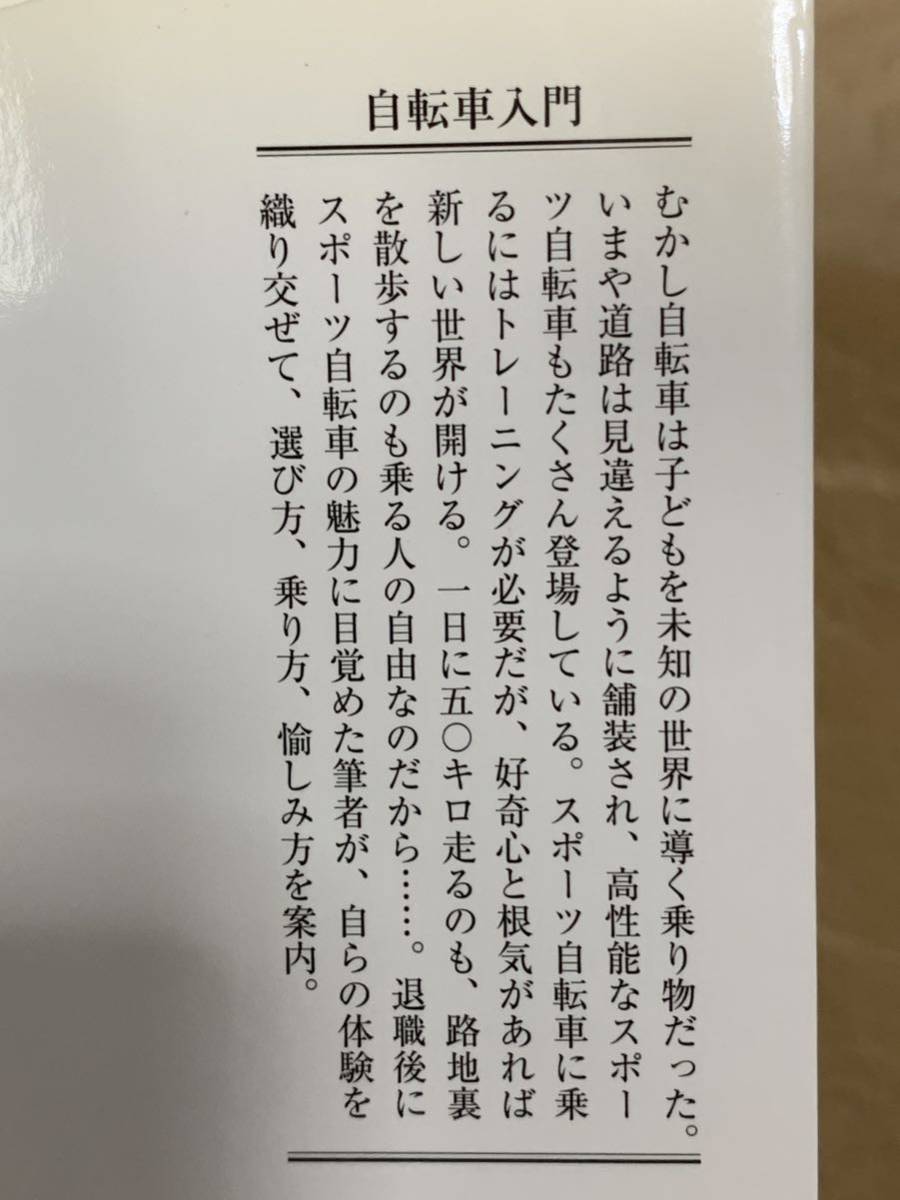 自転車入門
むかし自転車は子どもを未知の世界に導く乗り物だった。
いまや道路は見違えるように舗装され、高性能なスポー
ツ自転車もたくさん登場している。スポーツ自転車に乗
るにはトレーニングが必要だが、好奇心と根気があれば
新しい世界が開ける。一日に五〇キロ走るのも、路地裏
を散歩するのも乗る人の自由なのだから……。退職後に
スポーツ自転車の魅力に目覚めた筆者が、自らの体験を
織り交ぜて、選び方、乗り方、愉しみ方を案内。